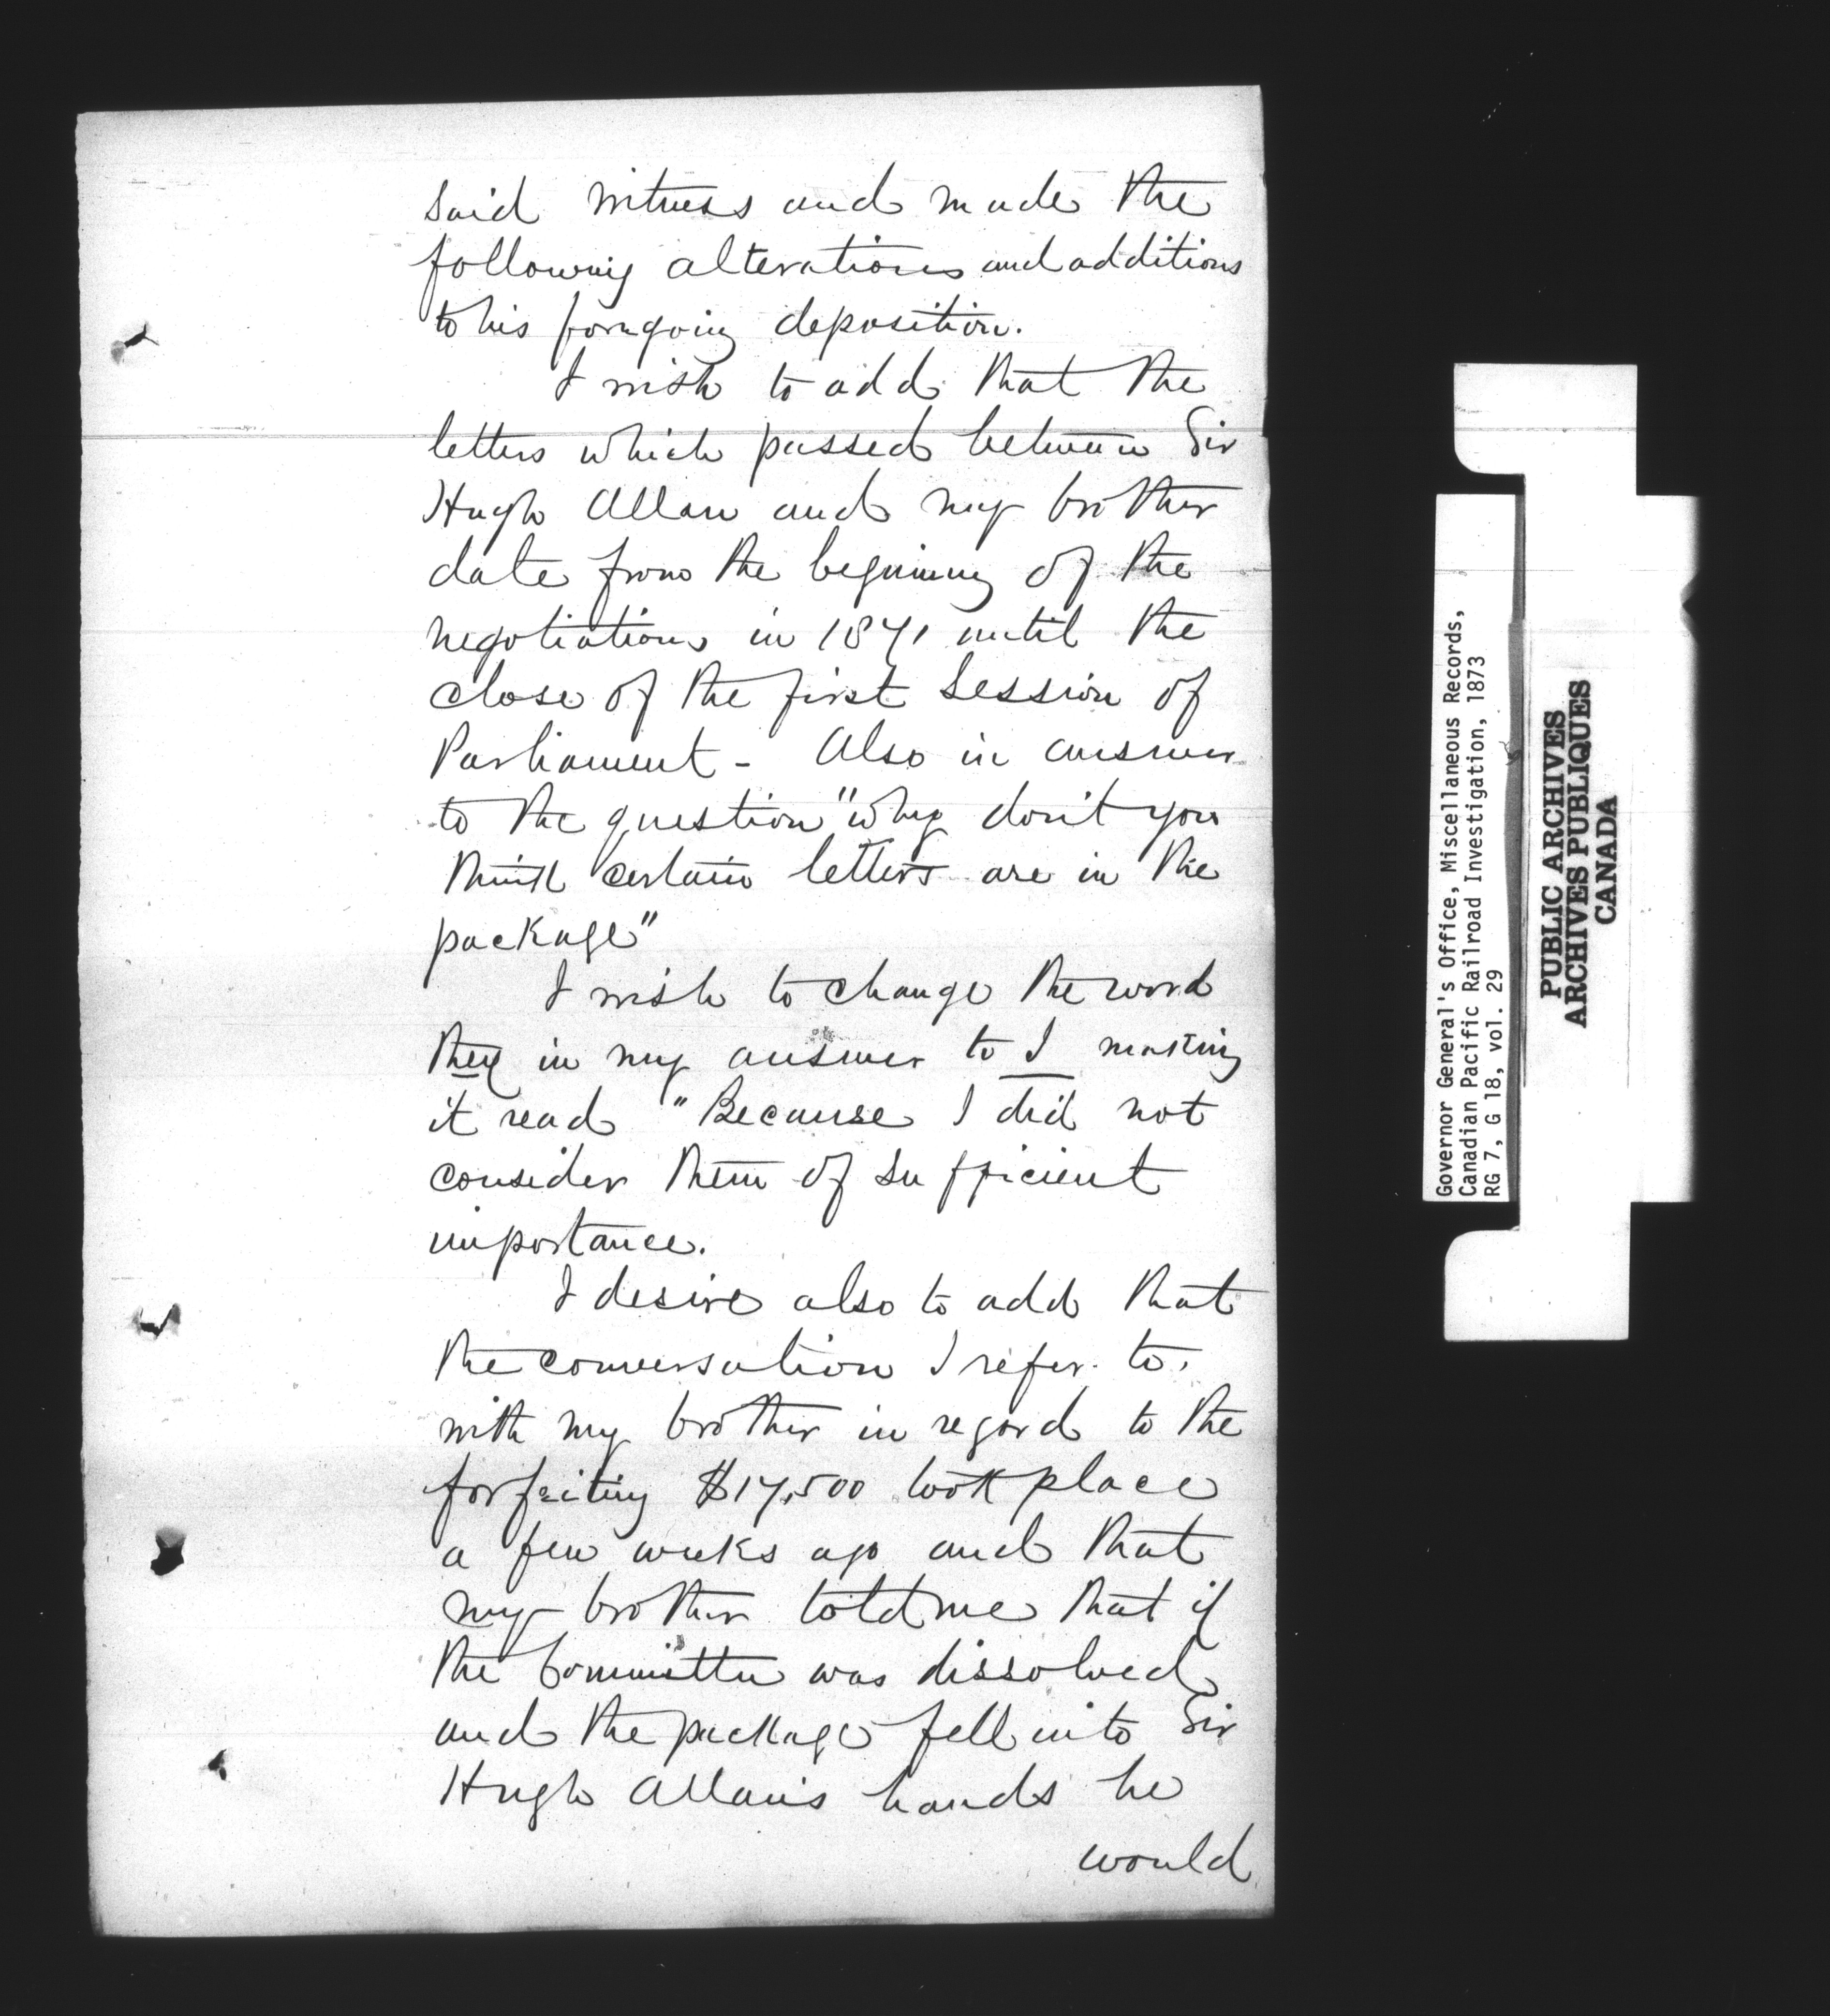 said witness and made the
following alterations and additions
to his foregoing deposition.
I wish to add that the
letters which passed between Sir
Hugh Allan and my brother
date from the beginning of the
negotiations in 1871 until the
close of the first Session of
Parliament - Also in answer
to the question "why don't you
think certain letters are in the
package"
I wish to change the word
they in my answer to I making
it read "Because I did not
consider them of sufficient
importance.
I desire also to add that
the conversation I refer to,
with my brother in regard to the
forfeiting $17,500 took place
a few weeks ago and that
my brother told me that if
the Committee was dissolved
and the package fell into Sir
Hugh Allan's hands he
would
Governor General's Office, Miscellaneous Records,
Canadian Pacific Railroad Investigation, 1873
RG 7, G 18, vol. 29
PUBLIC ARCHIVES
ARCHIVES PUBLIQUES
CANADA